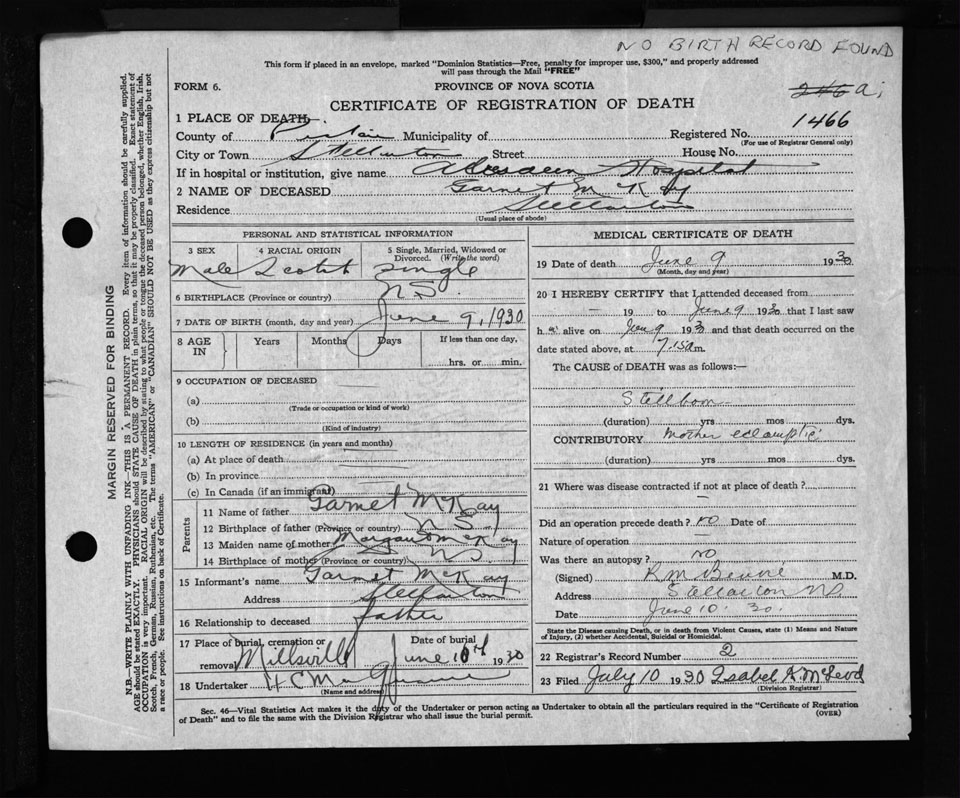 NO BIRTH RECORD FOUND
This form if placed in an envelope, marked "Dominion Statistics—Free, penalty for improper use, $300," and properly addressed
will pass through the Mail "FREE"
FORM 6.
PROVINCE OF NOVA SCOTIA
CERTIFICATE OF REGISTRATION OF DEATH
1466
1 PLACE OF DEATH.
County of Municipality of Registered No.
(For use of Registrar General only)
City or Town Stellarton Street House No.
If in hospital or institution, give name Aberdeen Hospital
2 NAME OF DECEASED Garnet McKay
Residence Stellarton
(Usual place of abode)
PERSONAL AND STATISTICAL INFORMATION
3 SEX 4 RACIAL ORIGIN 5 Single, Married, Widowed or Divorced. (Write the word)
Male Scotch Single
6 BIRTHPLACE (Province or country) N.S.
7 DATE OF BIRTH (month, day and year) June 9, 1930
8 AGE IN Years Months Days If less than one day,
hrs. or min.
9 OCCUPATION OF DECEASED
(a)
(Trade or occupation or kind of work)
(b)
(Kind of industry)
10 LENGTH OF RESIDENCE (in years and months)
(a) At place of death
(b) In province
(c) In Canada (if an immigrant)
Parents
11 Name of father Garnet McKay
12 Birthplace of father (Province or country) N S
13 Maiden name of mother McKay
14 Birthplace of mother (Province or country) NS
15 Informant's name Garnet McKay
Address Stellarton
16 Relationship to deceased father
17 Place of burial, cremation or removal Millsville Date of burial June 10th 1930
18 Undertaker H C
(Name and address)
MEDICAL CERTIFICATE OF DEATH
19 Date of death June 9 1930
(Month, day and year)
20 I HEREBY CERTIFY that I attended deceased from
19 to June 9 1930 that I last saw
h alive on 9 1930 and that death occurred on
date stated above, at 7.15 a m.
The CAUSE of DEATH was as follows:—
Stillborn
(duration) yrs mos dys.
CONTRIBUTORY Mother eclamptic
(duration) yrs mos dys.
21 Where was disease contracted if not at place of death?
Did an operation precede death? no Date of
Nature of operation
Was there an autopsy? no
(Signed) M.D.
Address Stellarton NS
Date June 10. 30.
State the Disease causing Death, or in death from Violent Causes, state (1) Means and Nature
of Injury, (2) whether Accidental, Suicidal or Homicidal.
22 Registrar's Record Number 2
23 Filed July 10 1930 Isabel A. McLeod
(Division Registrar)
Sec. 46—Vital Statistics Act makes it the duty of the Undertaker or person acting as Undertaker to obtain all the particulars required in the "Certificate of Registration
of Death" and to file the same with the Division Registrar who shall issue the burial permit. (OVER)
MARGIN RESERVED FOR BINDING
N.B.—WRITE PLAINLY WITH UNFADING INK—THIS IS A PERMANENT RECORD. Every item of information should be carefully supplied.
AGE should be stated EXACTLY. PHYSICIANS should STATE CAUSE OF DEATH in plain terms, so that it may be properly classified. Exact statement of
OCCUPATION is very important. RACIAL ORIGIN will be described by stating to what people or tongue the deceased person belonged, whether English, Irish,
Scotch, French, German, Russian, Ruthenian, etc. The terms "AMERICAN" or "CANADIAN" SHOULD NOT BE USED as they express citizenship but not
a race or people. See instructions on back of Certificate.